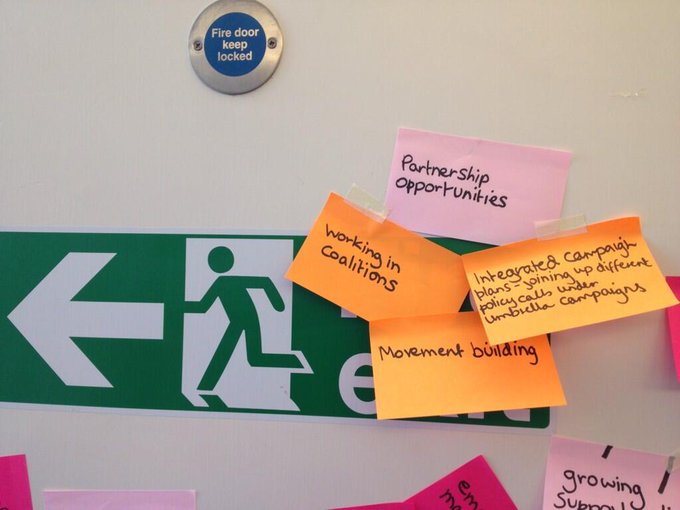 Fire door
keep
locked
Partnership
opportunities
Working in
Coalitions
Integrated Campaign
plans - joining up different
policy calls under
umbrella campaigns
Movement building
growing